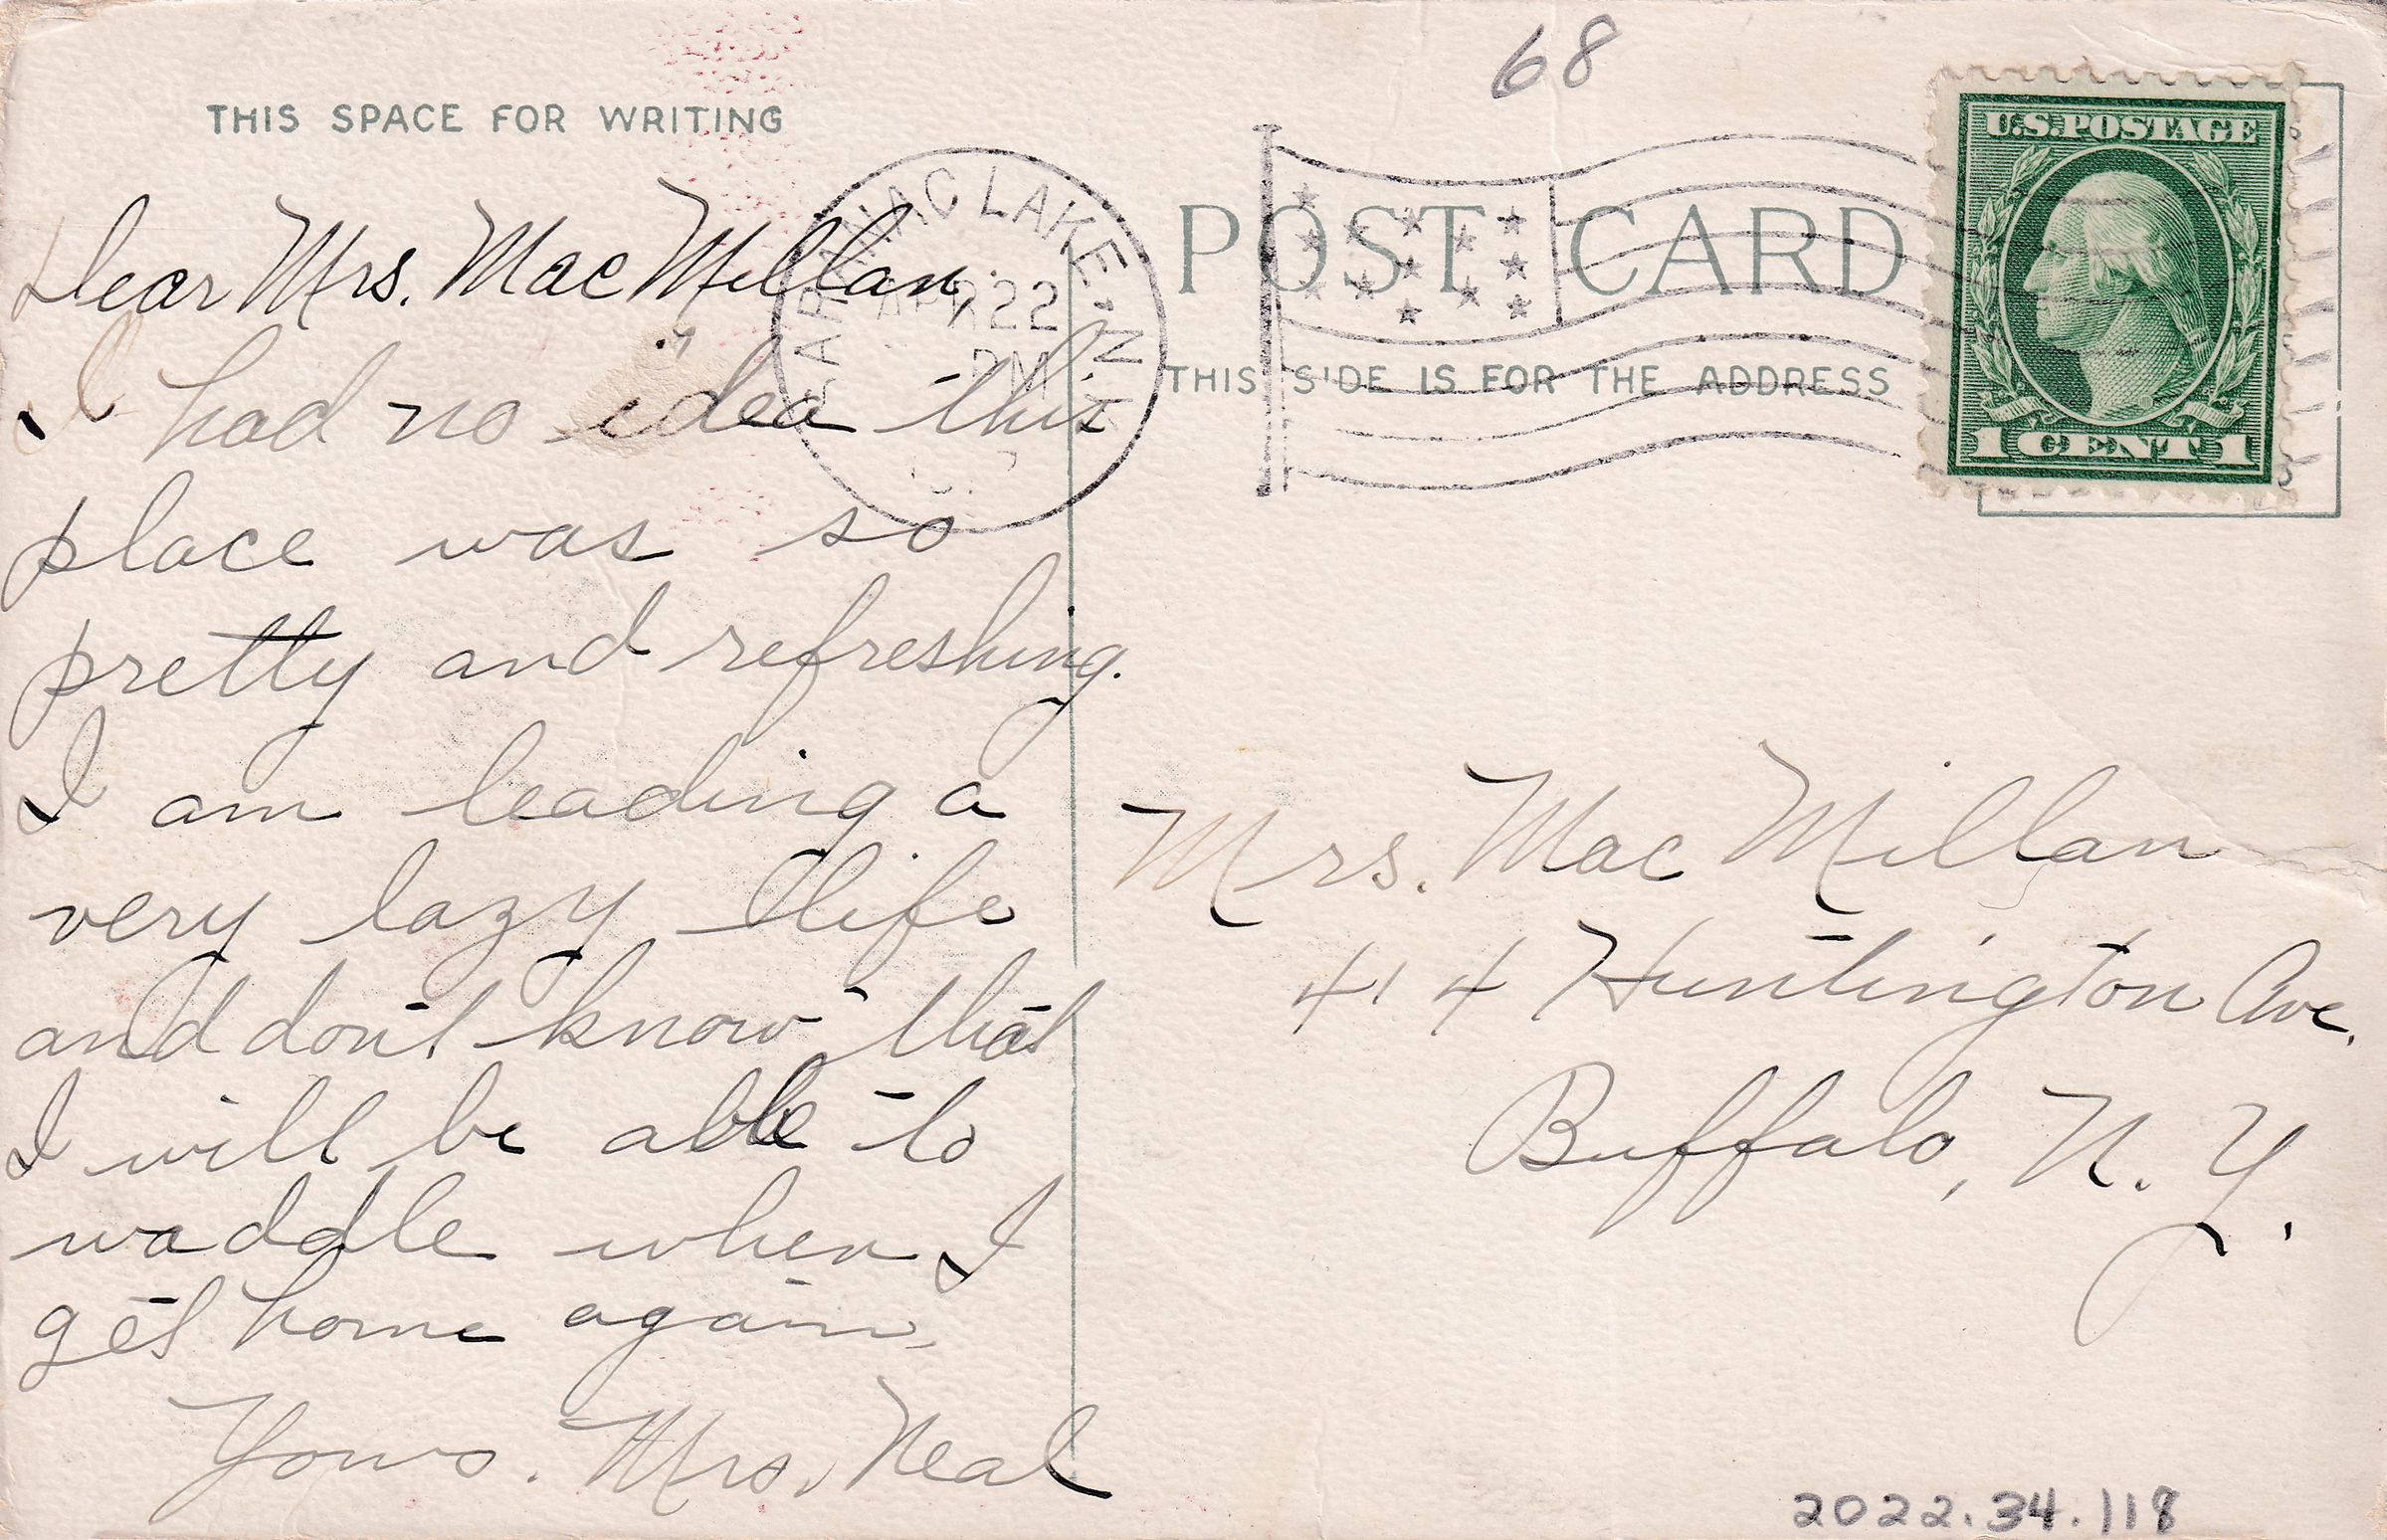 68
THIS SPACE FOR WRITING
POST CARD
THIS SIDE IS FOR THE ADDRESS
U.S. POSTAGE
1 CENT 1
SARANAC LAKE N.Y.
APR 22
PM
Dear Mrs. MacMillan,
I had no idea this
place was so
pretty and refreshing.
I am leading a
very lazy life
and don't know that
I will be able to
waddle when I
get home again.
Yours. Mrs. Neal
Mrs. MacMillan
414 Huntington Ave.
Buffalo, N.Y.
2022.34.118